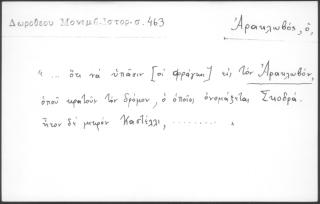 Δωροθεου Μονεμβ. Ιστορ. σ. 463
Ἀρακλωβός, ὁ,
« ... ὅτι νά ὑπᾶσιν [οἱ Φράγκοι] εἰς τόν Ἀρακλωβόν,
ὁποῦ κρατοῦν τόν δρόμον, ὁ ὁποῖος ὀνομάζεται Σκοδρά.
ἦτον δέ μικρόν Καστέλλι, .......... »